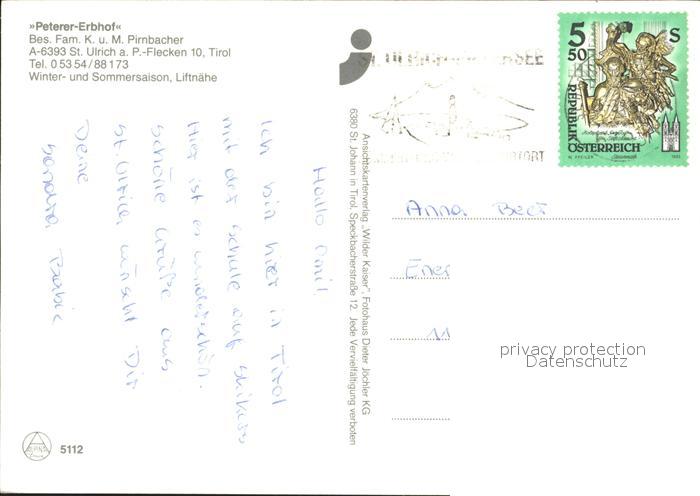 »Peterer-Erbhof«
Bes. Fam. K. u. M. Pirnbacher
A-6393 St. Ulrich a. P.-Flecken 10, Tirol
Tel. 0 53 54 / 88 1 73
Winter- und Sommersaison, Liftnähe
Hallo
Ich bin hier in Tirol
mit der Schule auf Skikurs
Hier ist es wunderschön.
Schöne Grüße aus
St. Ulrich wünscht Dir
Deine
Sandra
5112
Ansichtskartenverlag „Wilder Kaiser", Fotohaus Dieter Jöchler KG
6380 St. Johann in Tirol, Speckbacherstraße 12. Jede Vervielfältigung verboten
5 50 S
REPUBLIK
ÖSTERREICH
Anna
11
privacy protection
Datenschutz